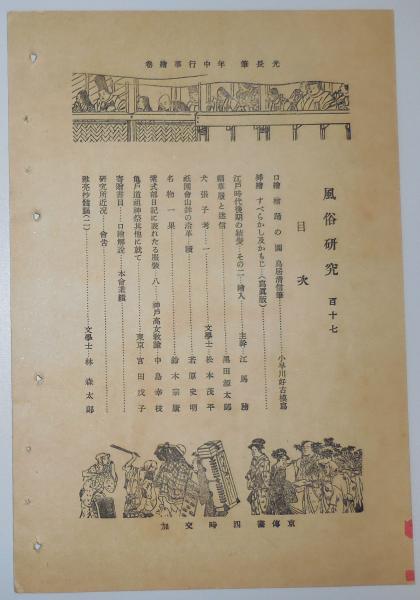 光長筆 年中行事繪卷
風俗研究 百十七
目次
口繪 繪踊の圖 鳥居清信筆……小早川好古模寫
挿繪 すべらかし及かもじ…(寫眞版)
江戸時代後期の結髮…その二…繪入……主幹 江馬務
縮華履と迷信……黒田源太郎
犬張子考…一……文學士 松本茂平
祇園會山鉾の沿革 續……若原史明
名物一果……鈴木宗康
紫式部日記に表れたる服裝…八…神戸高女敎諭 中島幸枝
龜戸道祖神祭其他に就て……東京 宮田戊子
寄贈書目……口繪解說……本會者錄
研究所近況……會告
雅亮抄餞談(二)……文學士 林森太郎
京傳畵 四時交加